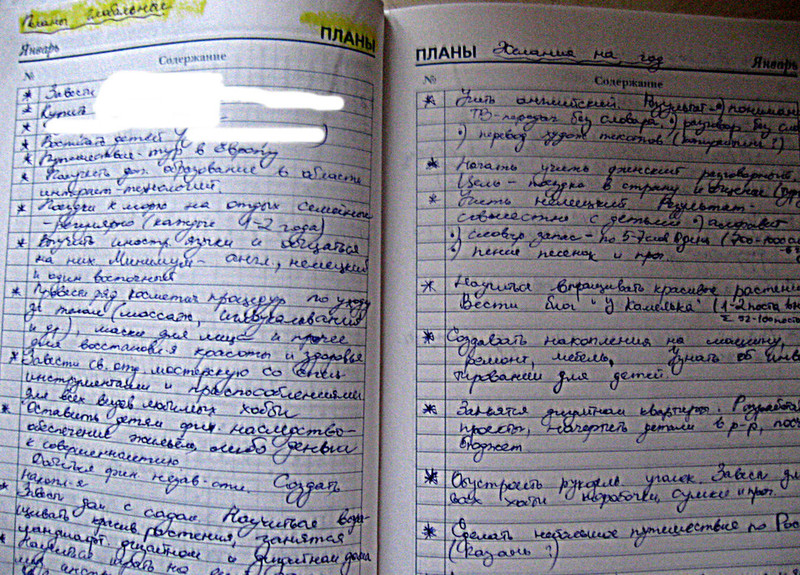 Планы глобальные
ПЛАНЫ
Январь
Содержание
№
* Завести
* Купить
*
* Воспитать детей
* Путешествие-тур в Европу
* Получить доп. образование в области
интернет-технологий
* Поездки к морю на отдых семейное
- регулярно (каждые 1-2 года)
* Выучить иностр. языки и общаться
на них Минимум - англ., немецкий
и один восточный
* Провести ряд косметич процедур по уходу
за телом (массаж, иглоукалывания
и др), маски для лица и прочее
для восстановл-я красоты и здоровья
* Завести св. отд. мастерскую со спец.
инструментами и приспособлениями
для всех видов любимых хобби
* Оставить детям фин. наследство -
обеспечение жильём, либо деньги
к совершеннолетию
Добиться фин. незав-сти. Создать
накопл-я
* Завести дом с садом. Научиться выра-
щивать красив. растения, занятся
ландшафт. дизайном и дизайном дома
* Научиться играть на
ПЛАНЫ Желания на год
Январь
№
Содержание
* Учить английский. Результат - •) понимание
ТВ-передач без словаря •) разговор без
•) перевод худож текстов (копирайтинг?)
* Начать учить
разговорный
Цель - поездка в страну и
* Учить немецкий Результат -
совместно с детьми •) алфавит
•) словар запас - по 5-7 слов в день
•) пение песенок и проч.
* Научиться выращивать красивые растения
Вести блог "У Камелька" (1-2 поста в
Σ 92-100 пост
* Создавать накопления на машину,
ремонт, мебель, Узнать об инвес
тировании для детей.
* Занятся дизайном квартиры.
проекты, начертить детали в р-р,
бюджет
* Обустроить рукодел. уголок. Завести для
всех хобби коробочки, сумки и проч.
* Сделать небольшое путешествие по Рос
(Казань?)